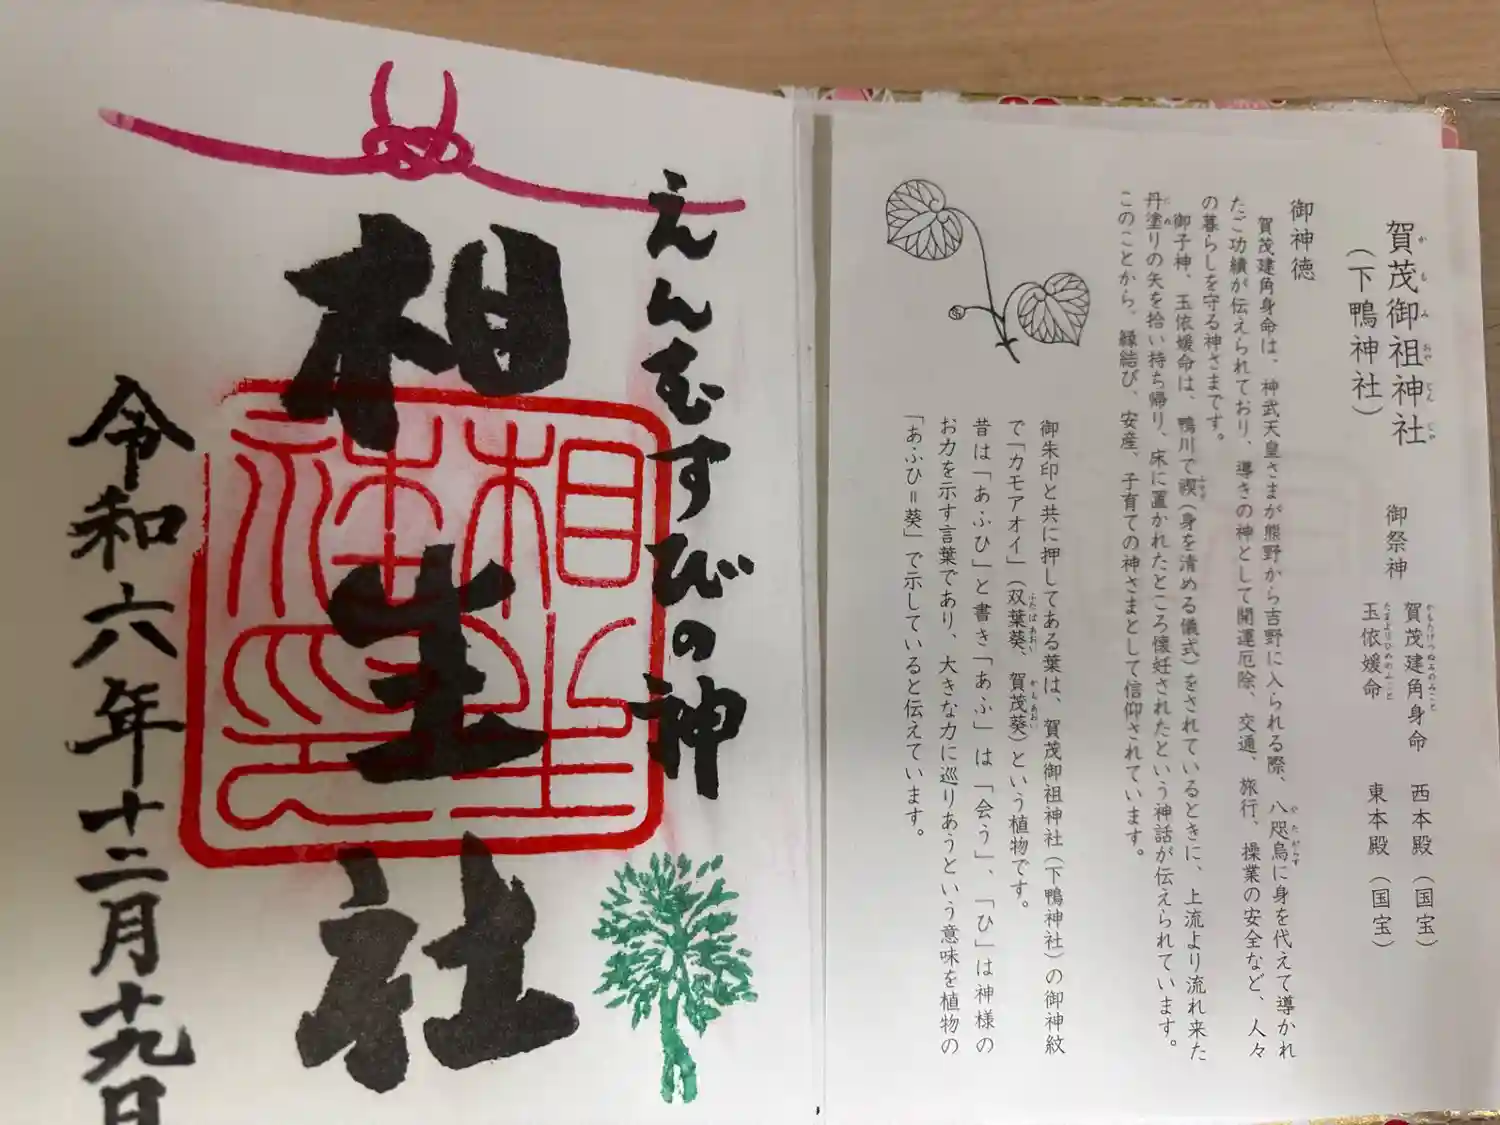 賀茂御祖神社
(下鴨神社)
御祭神
賀茂建角身命 西本殿(国宝)
玉依媛命 東本殿(国宝)
御神徳
賀茂建角身命は、神武天皇さまが熊野から吉野に入られる際、八咫烏に身を代えて導かれ
たご功績が伝えられており、導きの神として開運厄除、交通、旅行、操業の安全など、人々
の暮らしを守る神さまです。
御子神、玉依媛命は、鴨川で禊(身を清める儀式)をされているときに、上流より流れ来た
丹塗りの矢を拾い持ち帰り、床に置かれたところ懐妊されたという神話が伝えられています。
このことから、縁結び、安産、子育ての神さまとして信仰されています。
御朱印と共に押してある葉は、賀茂御祖神社(下鴨神社)の御神紋
で「カモアオイ」(双葉葵、賀茂葵)という植物です。
昔は「あふひ」と書き「あふ」は「会う」、「ひ」は神様の
お力を示す言葉であり、大きな力に巡りあうという意味を植物の
「あふひ=葵」で示していると伝えています。
えんむすびの神
相生社
相生社印
令和六年十二月十九日